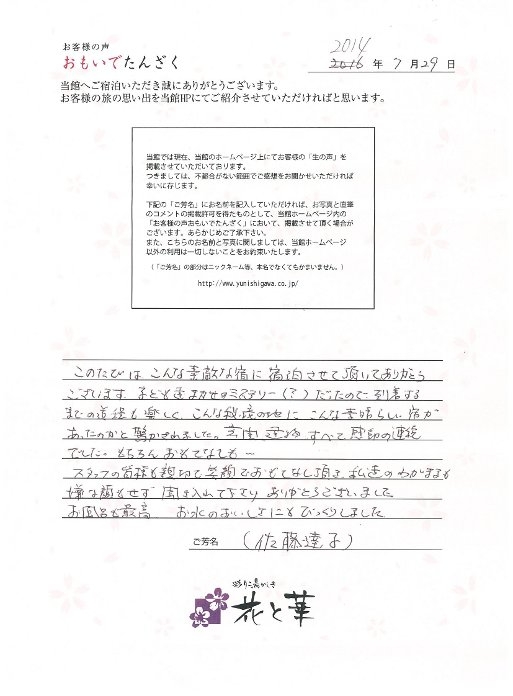 お客様の声
おもいでたんざく
2014
2016 年 7 月 29 日
当館へご宿泊いただき誠にありがとうございます。
お客様の旅の思い出を当館HPにてご紹介させていただければと思います。
当館では現在、当館のホームページ上にてお客様の「生の声」を
掲載させていただいております。
つきましては、不都合がない範囲でご感想をお聞かせいただければ
幸いに存じます。
下記の「ご芳名」にお名前を記入していただければ、お写真と直筆
のコメントの掲載許可を得たものとして、当館ホームページ内の
「お客様の声おもいでたんざく」において、掲載させて頂く場合が
ございます。あらかじめご了承下さい。
また、こちらのお名前と写真に関しましては、当館ホームページ
以外の利用は一切しないことをお約束いたします。
（「ご芳名」の部分はニックネーム等、本名でなくてもかまいません。）
http://www.yunishigawa.co.jp/
このたびは こんな素敵な宿に宿泊させて頂いてありがとう
ございます 子ども達まかせのミステリー(?)だったので 到着する
までの道程も楽しく、こんな秘境の地に こんな素晴らしい宿が
あったのかと驚かされました。玄関 すべて感動の連続
でした。もちろん おもてなしも…
スタッフの皆様も親切で笑顔でおもてなし頂き 私達のわがままも
嫌な顔もせず 聞き入れて下さり ありがとうございました
お風呂も最高 お水のおいしさにもびっくりしました
ご芳名 (佐藤達子)
彩り湯かしき
花と華